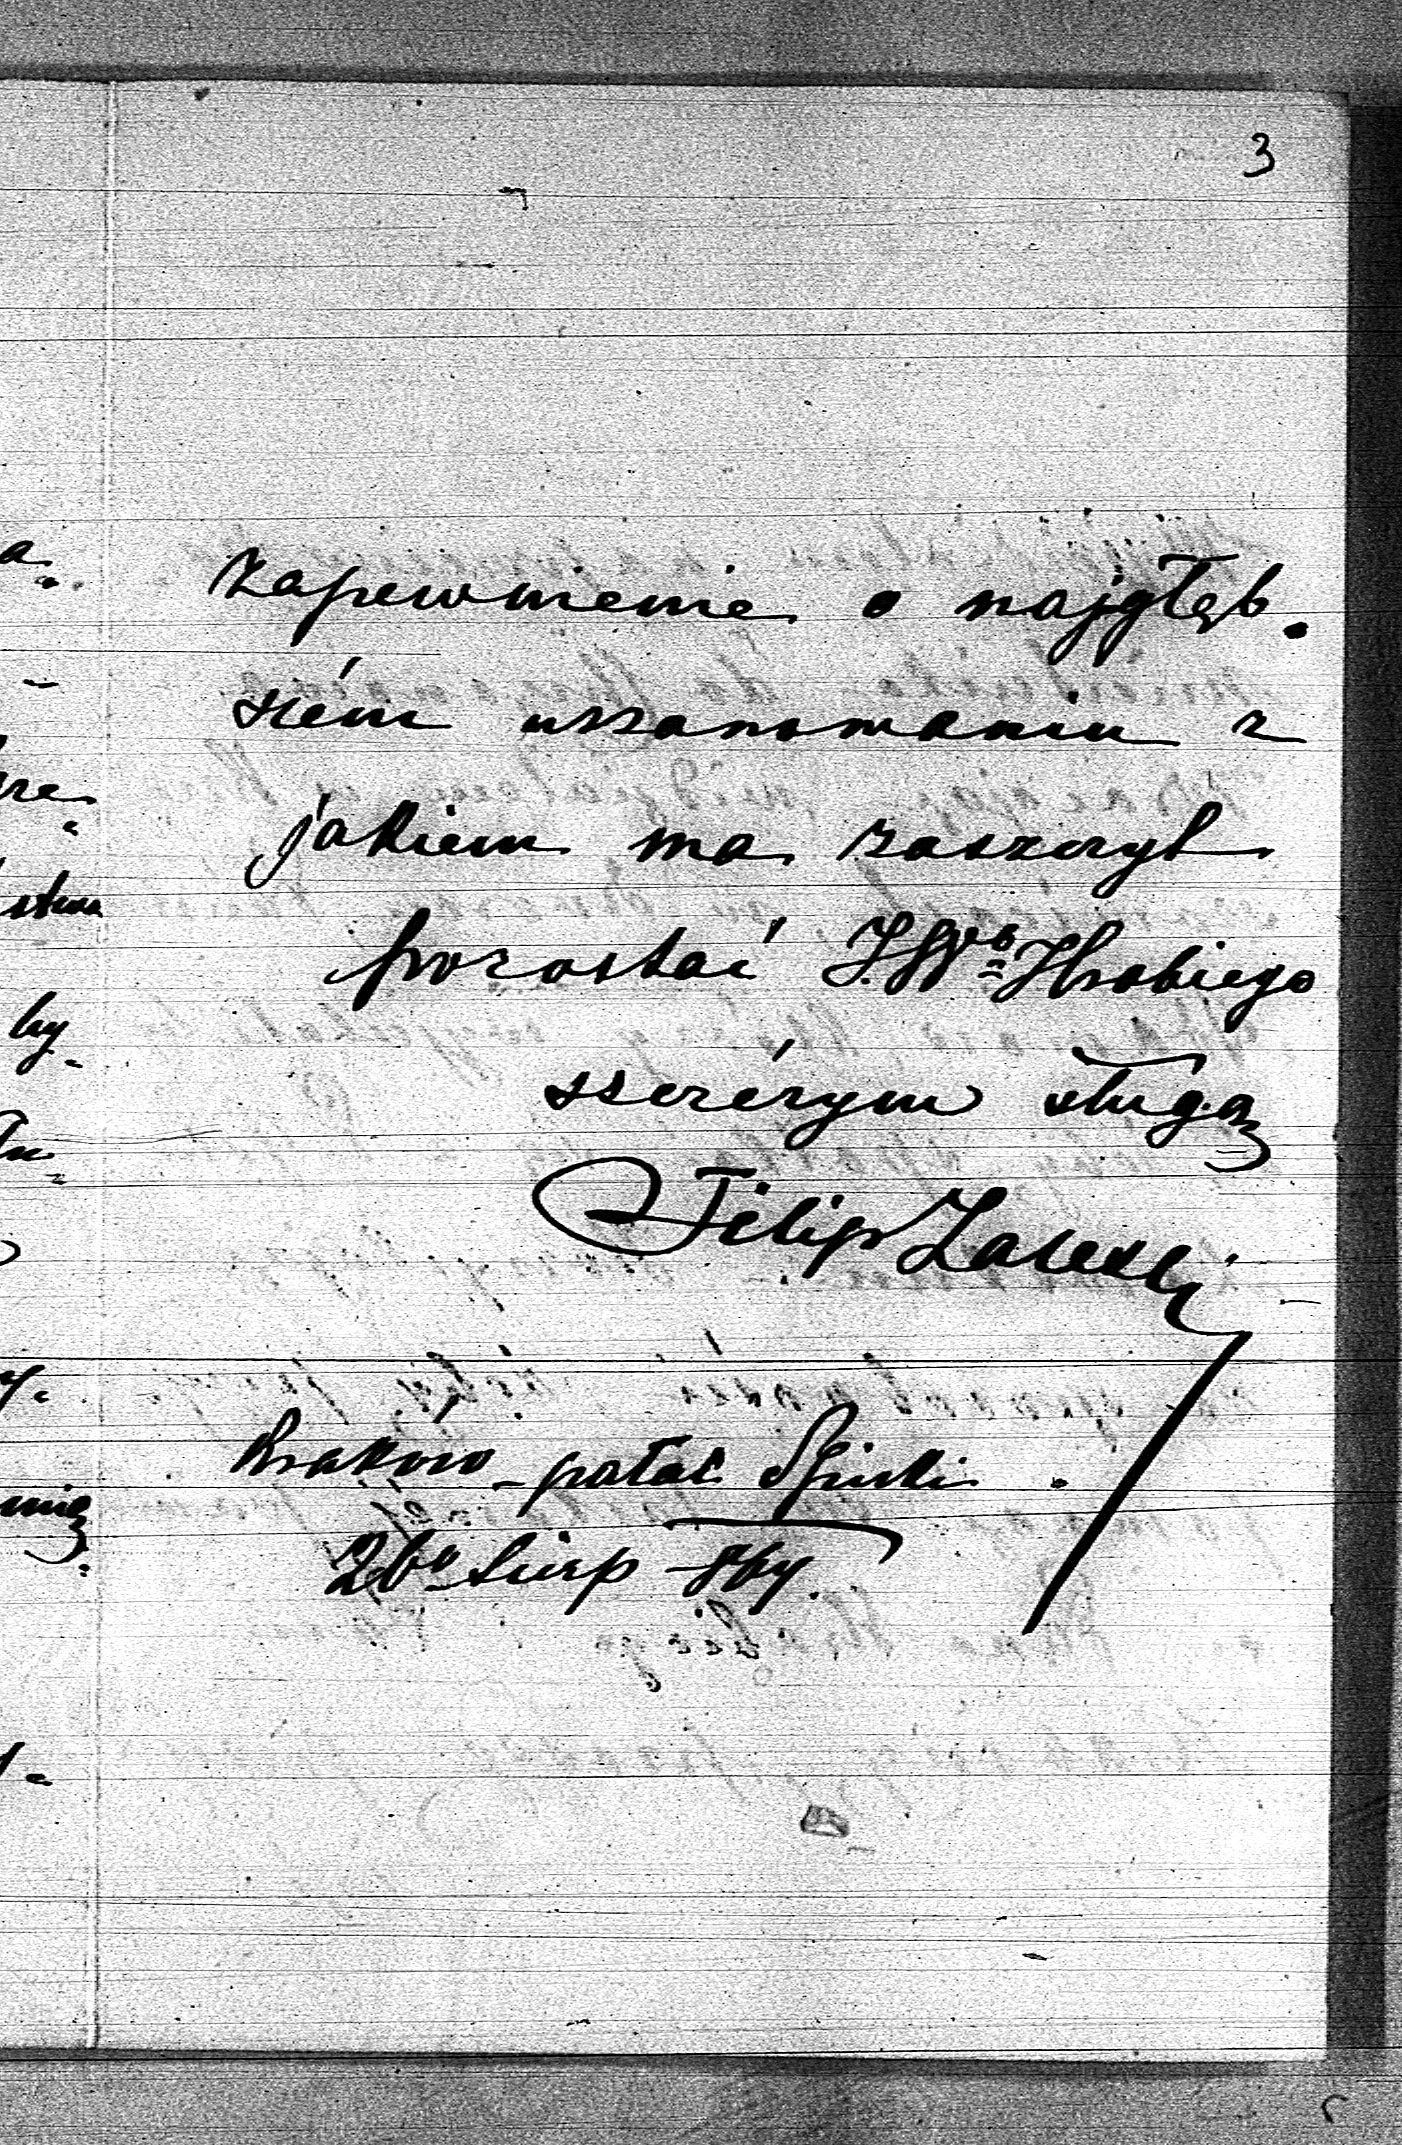 3
zapewnienie o najgłęb.
szém uszanowaniu z
jakiem ma zaszczyt
pozostać J.W⁰ Hrabiego
szczérym sługą
Filip Zaleski
Kraków – pałac Spiski.
26⁰ Sierp